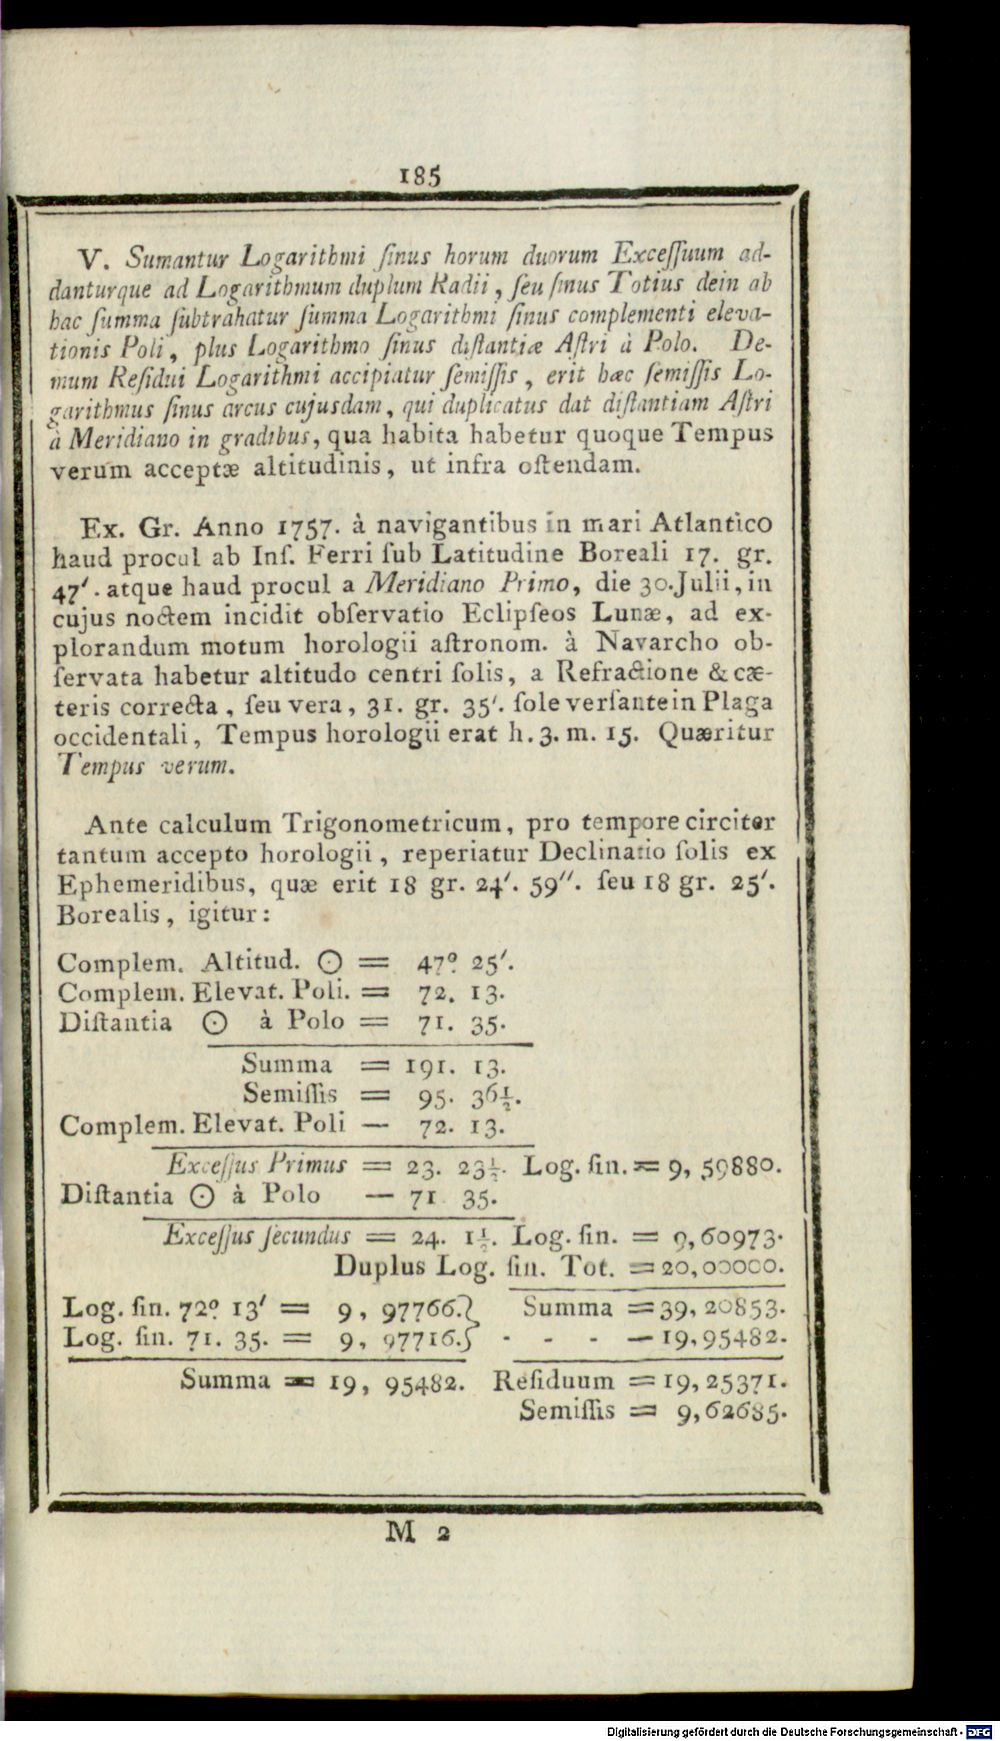 185
V. Sumantur Logarithmi ſinus horum duorum Exceſſuum ad-
danturque ad Logarithmum duplum Radii, ſeu ſinus Totius dein ab
hac ſumma ſubtrahatur ſumma Logarithmi ſinus complementi eleva-
tionis Poli, plus Logarithmo ſinus diſtantiæ Aſtri à Polo. De-
mum Reſidui Logarithmi accipiatur ſemiſſis, erit hæc ſemiſſis Lo-
garithmus ſinus arcus cujusdam, qui duplicatus dat diſtantiam Aſtri
à Meridiano in gradibus, qua habita habetur quoque Tempus
verum acceptæ altitudinis, ut infra oſtendam.
Ex. Gr. Anno 1757. à navigantibus in mari Atlantico
haud procul ab Inſ. Ferri ſub Latitudine Boreali 17. gr.
47′. atque haud procul a Meridiano Primo, die 30. Julii, in
cujus noctem incidit obſervatio Eclipſeos Lunæ, ad ex-
plorandum motum horologii aſtronom. à Navarcho ob-
ſervata habetur altitudo centri ſolis, a Refractione & cæ-
teris correcta, ſeu vera, 31. gr. 35′. ſole verſante in Plaga
occidentali, Tempus horologii erat h. 3. m. 15. Quæritur
Tempus verum.
Ante calculum Trigonometricum, pro tempore circiter
tantum accepto horologii, reperiatur Declinatio ſolis ex
Ephemeridibus, quæ erit 18 gr. 24′. 59″. ſeu 18 gr. 25′.
Borealis, igitur:
Complem. Altitud. ☉ = 47º. 25′.
Complem. Elevat. Poli. = 72. 13.
Diſtantia ☉ à Polo = 71. 35.
Summa = 191. 13.
Semiſſis = 95. 36½.
Complem. Elevat. Poli — 72. 13.
Exceſſus Primus = 23. 23½. Log. ſin. = 9, 59880.
Diſtantia ☉ à Polo — 71 35.
Exceſſus ſecundus = 24. 1½. Log. ſin. = 9,60973.
Duplus Log. ſin. Tot. = 20,00000.
Log. ſin. 72º. 13′ = 9, 97766.} Summa = 39, 20853.
Log. ſin. 71. 35. = 9, 97716.} - - - — 19,95482.
Summa = 19, 95482. Reſiduum = 19,25371.
Semiſſis = 9,62685.
M 2
Digitalisierung gefördert durch die Deutsche Forschungsgemeinschaft - DFG